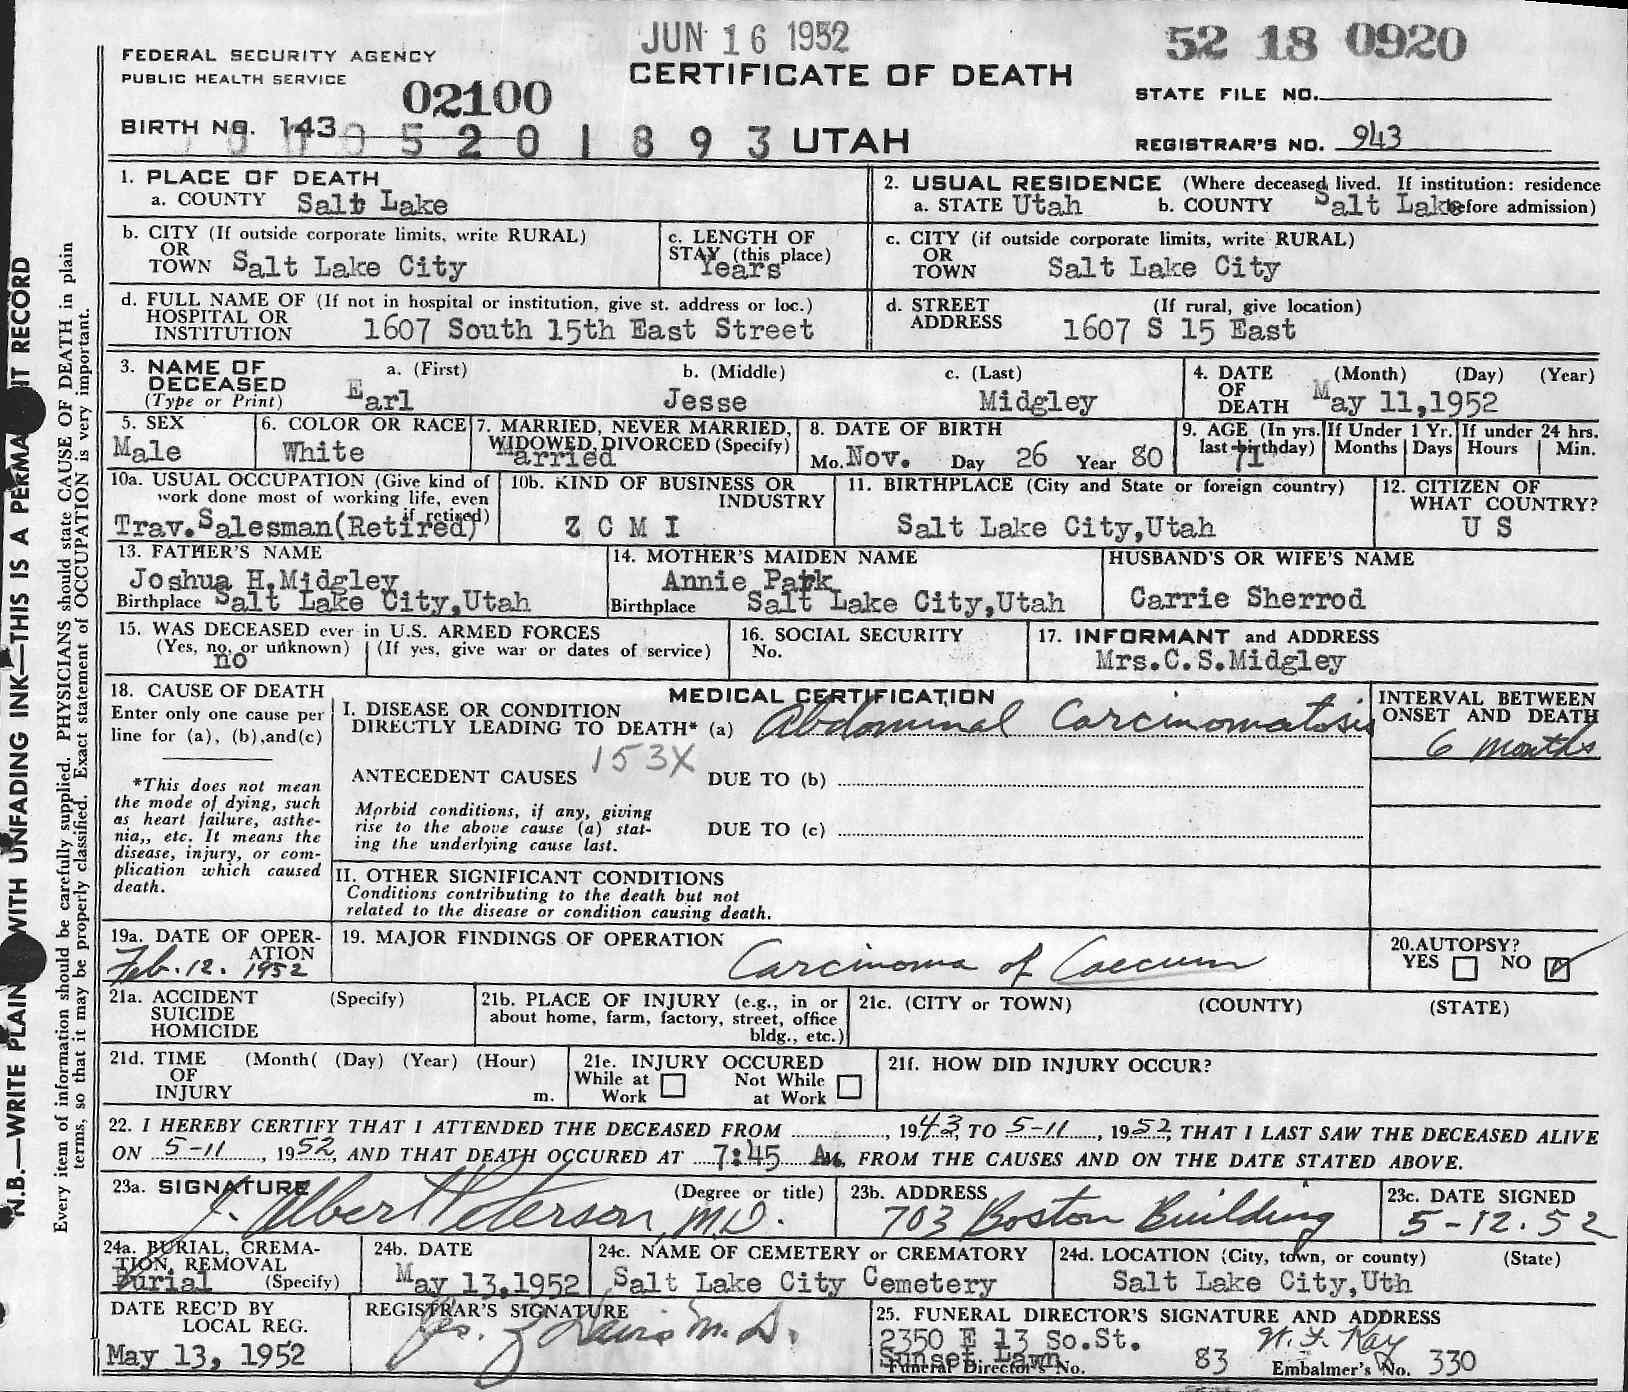 JUN 16 1952
52 18 0920
FEDERAL SECURITY AGENCY
PUBLIC HEALTH SERVICE
CERTIFICATE OF DEATH
STATE FILE NO.
02100
BIRTH NO. 143
5 2 0 1 8 9 3 UTAH
REGISTRAR'S NO. 943
1. PLACE OF DEATH
a. COUNTY Salt Lake
2. USUAL RESIDENCE (Where deceased lived. If institution: residence
a. STATE Utah b. COUNTY Salt Lake before admission)
b. CITY (If outside corporate limits, write RURAL)
OR
TOWN Salt Lake City
c. LENGTH OF
STAY (this place)
Years
c. CITY (if outside corporate limits, write RURAL)
OR
TOWN Salt Lake City
d. FULL NAME OF (If not in hospital or institution, give st. address or loc.)
HOSPITAL OR
INSTITUTION 1607 South 15th East Street
d. STREET (If rural, give location)
ADDRESS 1607 S 15 East
3. NAME OF a. (First) b. (Middle) c. (Last)
DECEASED
(Type or Print) Earl Jesse Midgley
4. DATE (Month) (Day) (Year)
OF
DEATH May 11,1952
5. SEX
Male
6. COLOR OR RACE
White
7. MARRIED, NEVER MARRIED,
WIDOWED, DIVORCED (Specify)
Married
8. DATE OF BIRTH
Mo. Nov. Day 26 Year 80
9. AGE (In yrs.
last birthday)
71
If Under 1 Yr.
Months Days
If under 24 hrs.
Hours Min.
10a. USUAL OCCUPATION (Give kind of
work done most of working life, even
if retired)
Trav. Salesman(Retired)
10b. KIND OF BUSINESS OR
INDUSTRY
Z C M I
11. BIRTHPLACE (City and State or foreign country)
Salt Lake City,Utah
12. CITIZEN OF
WHAT COUNTRY?
U S
13. FATHER'S NAME
Joshua H.Midgley
Birthplace Salt Lake City,Utah
14. MOTHER'S MAIDEN NAME
Annie Park
Birthplace Salt Lake City,Utah
HUSBAND'S OR WIFE'S NAME
Carrie Sherrod
15. WAS DECEASED ever in U.S. ARMED FORCES
(Yes, no, or unknown) (If yes, give war or dates of service)
no
16. SOCIAL SECURITY
No.
17. INFORMANT and ADDRESS
Mrs.C.S.Midgley
18. CAUSE OF DEATH
Enter only one cause per
line for (a), (b),and(c)
*This does not mean
the mode of dying, such
as heart failure, asthe-
nia,, etc. It means the
disease, injury, or com-
plication which caused
death.
MEDICAL CERTIFICATION
I. DISEASE OR CONDITION
DIRECTLY LEADING TO DEATH* (a) Abdominal Carcinomatosis
153X
ANTECEDENT CAUSES DUE TO (b)
Morbid conditions, if any, giving
rise to the above cause (a) stat-
ing the underlying cause last.
DUE TO (c)
II. OTHER SIGNIFICANT CONDITIONS
Conditions contributing to the death but not
related to the disease or condition causing death.
INTERVAL BETWEEN
ONSET AND DEATH
6 months
19a. DATE OF OPER-
ATION
Feb. 12. 1952
19. MAJOR FINDINGS OF OPERATION
Carcinoma of Caecum
20.AUTOPSY?
YES NO
21a. ACCIDENT (Specify)
SUICIDE
HOMICIDE
21b. PLACE OF INJURY (e.g., in or
about home, farm, factory, street, office
bldg., etc.)
21c. (CITY or TOWN) (COUNTY) (STATE)
21d. TIME (Month( (Day) (Year) (Hour)
OF
INJURY m.
21e. INJURY OCCURED
While at Not While
Work at Work
21f. HOW DID INJURY OCCUR?
22. I HEREBY CERTIFY THAT I ATTENDED THE DECEASED FROM , 1943, TO 5-11, 1952, THAT I LAST SAW THE DECEASED ALIVE
ON 5-11, 1952, AND THAT DEATH OCCURED AT 7:45 Am, FROM THE CAUSES AND ON THE DATE STATED ABOVE.
23a. SIGNATURE (Degree or title)
J. Albert Peterson, M.D.
23b. ADDRESS
703 Boston Building
23c. DATE SIGNED
5-12.52
24a. BURIAL, CREMA-
TION, REMOVAL
Burial (Specify)
24b. DATE
May 13,1952
24c. NAME OF CEMETERY or CREMATORY
Salt Lake City Cemetery
24d. LOCATION (City, town, or county) (State)
Salt Lake City,Uth
DATE REC'D BY
LOCAL REG.
May 13, 1952
REGISTRAR'S SIGNATURE
M.D.
25. FUNERAL DIRECTOR'S SIGNATURE AND ADDRESS
2350 E 13 So.St.
Sunset Lawn
Funeral Director's No. 83 Embalmer's No. 330
N.B.—WRITE PLAIN WITH UNFADING INK—THIS IS A PERMA IT RECORD
Every item of information should be carefully supplied. PHYSICIANS should state CAUSE OF DEATH in plain
terms, so that it may be properly classified. Exact statement of OCCUPATION is very important.